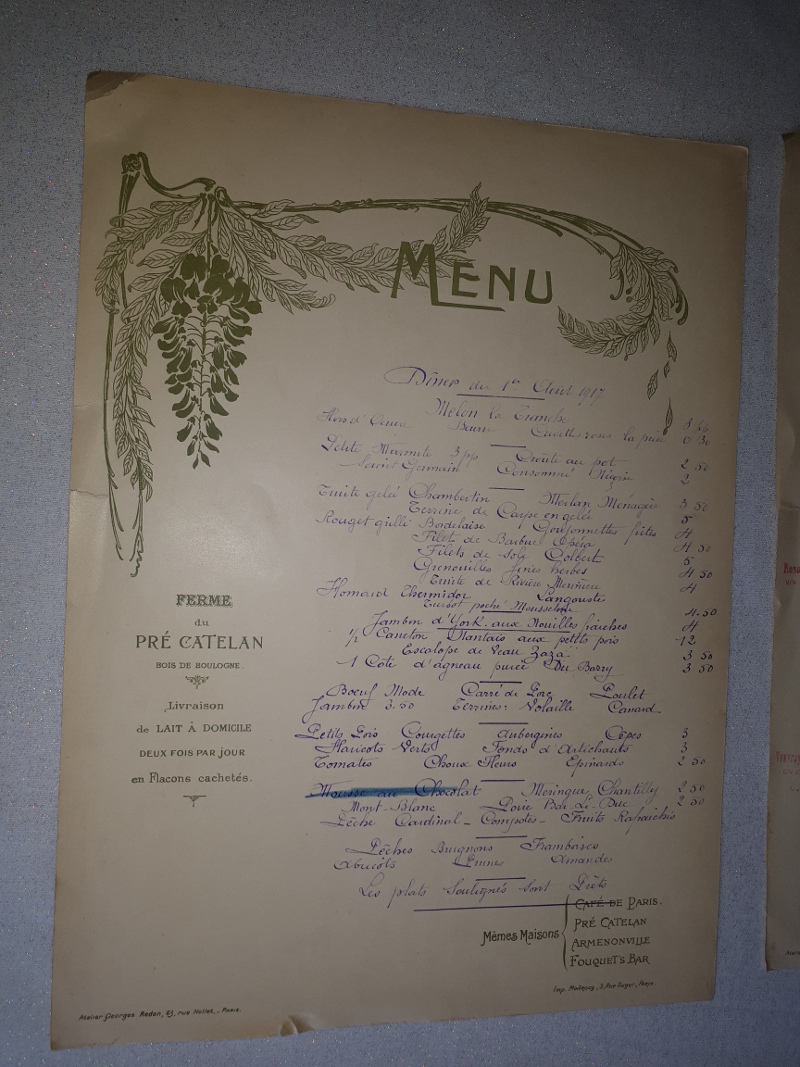 MENU
Dîner du 1er Août 1917
Melon la Tranche
Hors d'Oeuvre Beurre Crevettes roses la pièce 0 30
Petite Marmite 3 pp Croûte au pot 2 50
Saint Germain Consommé 2
Truite gelée Chambertin Merlan Ménagère 3 50
Terrine de Carpe en gelée 5
Rouget grillé Bordelaise Goujonnettes frites 4
Filets de Barbue Opéra 4 50
Filets de Sole Colbert 5
Grenouilles fines herbes 4 50
Truite de Rivière Meunière 4
Homard Thermidor Langouste
Turbot poché Mousseline 4.50
Jambon d'York aux Nouilles fraîches 4
1/2 Caneton Nantais aux petits pois 12
Escalope de Veau Zaza 3 50
1 Côte d'agneau purée Du Barry 3 50
Boeuf Mode Carré de Porc Poulet
Jambon 3.50 Terrines: Volaille Canard
Petits Pois Courgettes Aubergines Cèpes 3
Haricots Verts Fonds d'Artichauts 3
Tomates Choux Fleurs Epinards 2 50
Mousse au Chocolat Meringue Chantilly 2 50
Mont-Blanc Poire Bar-Le-Duc 2 50
Pêche Cardinal - Compotes - Fruits Rafraîchis
Pêches Brugnons Framboises
Abricots Prunes Amandes
Les plats Soulignés sont Prêts
FERME
du
PRÉ CATELAN
BOIS DE BOULOGNE.
Livraison
de LAIT À DOMICILE
DEUX FOIS PAR JOUR
en Flacons cachetés.
Mêmes Maisons
CAFÉ DE PARIS.
PRÉ CATELAN
ARMENONVILLE
FOUQUET'S BAR
Atelier Georges Redon, 61, rue Nollet, Paris.
Imp. Paris